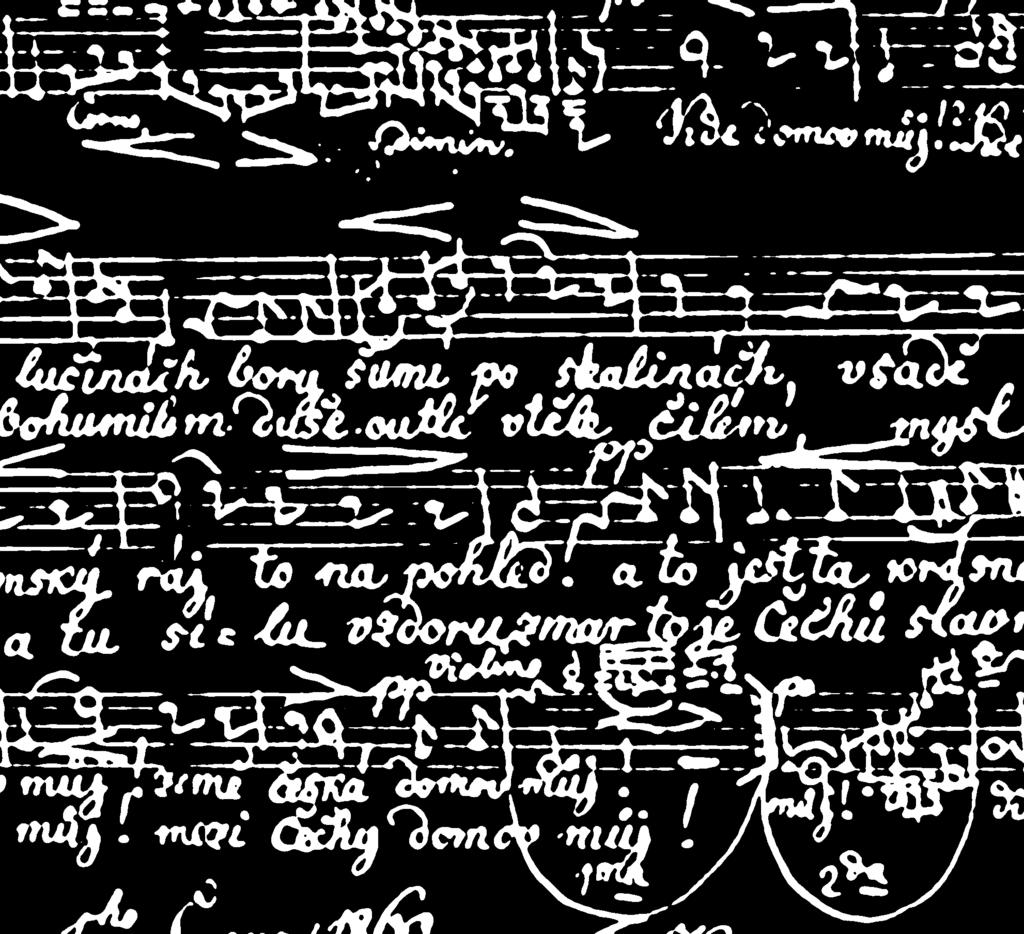 Corno
Dimin. Kde domov můj! Kde
lučinách bory šumí po skalinách, v sadě
bohumilém duše outlé v těle čilém, mysl
pp
zemský ráj to na pohled! a to jest ta krásná
a tu sí = lu vzdoru zmar to je Čechů slavn
Violino
pp
můj! země česká domov můj!
můj! mezi Čechy domov můj!
můj!
2da